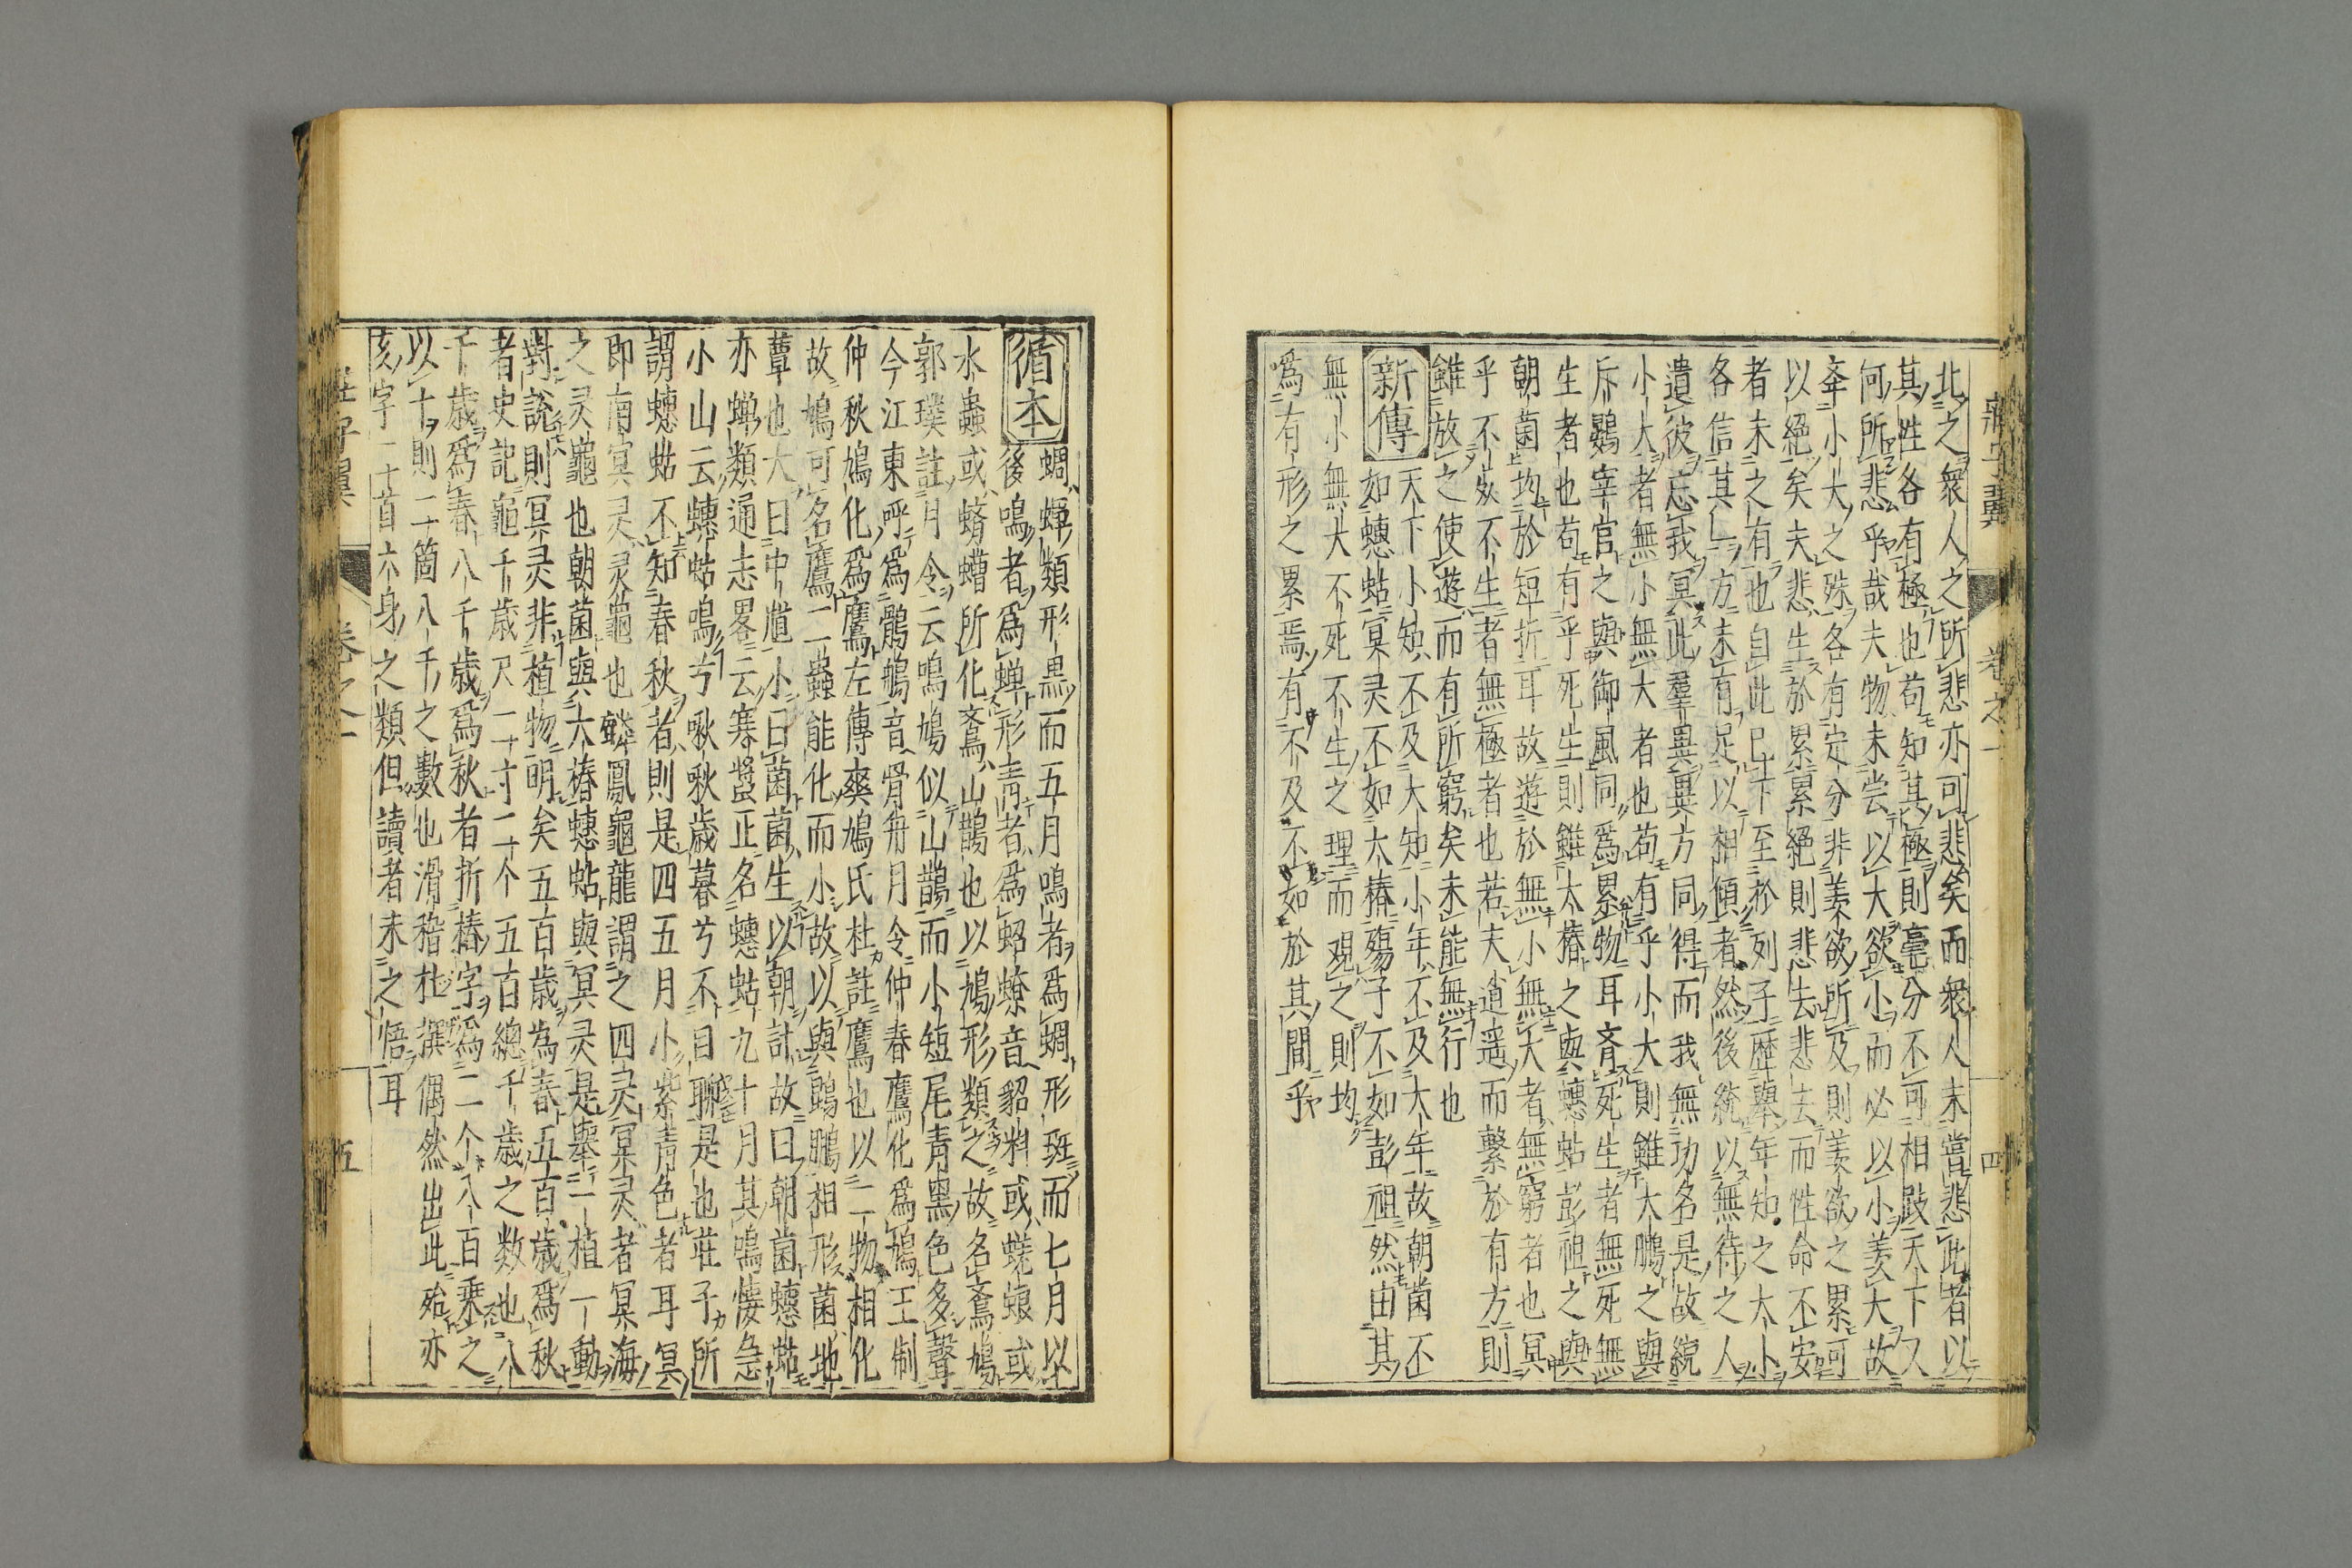 莊子翼　卷之一　四
北之衆人之所悲亦可悲矣而衆人未嘗悲此者以
其性各有極也苟知其極則毫分不可相跂天下又
何所悲乎哉夫物未尝以大欲小而必以小羡大故
夲小大之殊各有定分非羡欲所及則羡欲之累可
以絕矣夫悲生於累累絕則悲去悲去而性命不安
者未之有也自此已下至於列子歷舉年知之大小
各信其一方未有足以相傾者然後統以無待之人
遺彼忘我冥此羣異異方同得而我無功名是故統
小大者無小無大者也苟有乎小大則雖大鵬之與
斥鷃宰官之與御風同爲累物耳齊死生者無死無
生者也苟有乎死生則雖大椿之與蟪蛄彭祖之與
朝菌均於短折耳故遊於無小無大者無窮者也冥
乎不死不生者無極者也若夫逍遥而繫於有方則
雖放之使遊而有所窮矣未能無行也
新傳　天下小知不及大知小年不及大年故朝菌不
如蟪蛄冥灵不如大椿殤子不如彭祖然由其
無小無大不死不生之理而观之則均
爲有形之累焉有不及不如於其間乎
循本　蜩蟬類形黒而五月鳴者爲蜩形斑而七月以
後鳴者爲蝉形青者爲蛁蟟音貂料或蜣蜋或
水蟲或蠐螬所化鷽鳩山鵲也以鳩形類之故名鷽鳩
郭璞註月令云鳴鳩似山鵲而小短尾青黑色多聲
今江東呼爲鶻鵃音骨舟月令仲春鷹化爲鳩王制
仲秋鳩化爲鷹左傳爽鳩氏杜註鷹也以一物相化
故鳩可名鷹二蟲能化而小故以與鵾鵬相形菌地
蕈也大曰中馗小曰菌菌生以朝計故曰朝菌蟪蛄
亦蝉類通志畧云寒螿正名蟪蛄九十月其鳴悽急
小山云蟪蛄鳴兮啾啾歲暮兮不自聊是也莊子所
謂蟪蛄不知春秋者則是四五月小紫青色者耳冥
即南冥灵灵龜也麟鳳龜龍謂之四灵冥灵者冥海
之灵龜也朝菌與大椿蟪蛄與冥灵是舉一植一動
對說則冥灵非植物明矣五百歲為春五百歲爲秋
者史記龜千歲尺二寸二个五百總千歲之数也八
千歲爲春八千歲爲秋者折椿字爲二个八百乘之
以十則二箇八千之數也滑稽杜撰偶然出此殆亦
亥字二首六身之類但讀者未之悟耳
莊子翼　卷之一　五